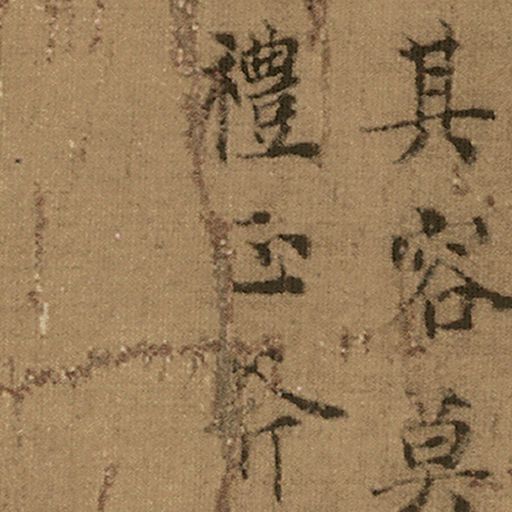 其容莫
禮正斧